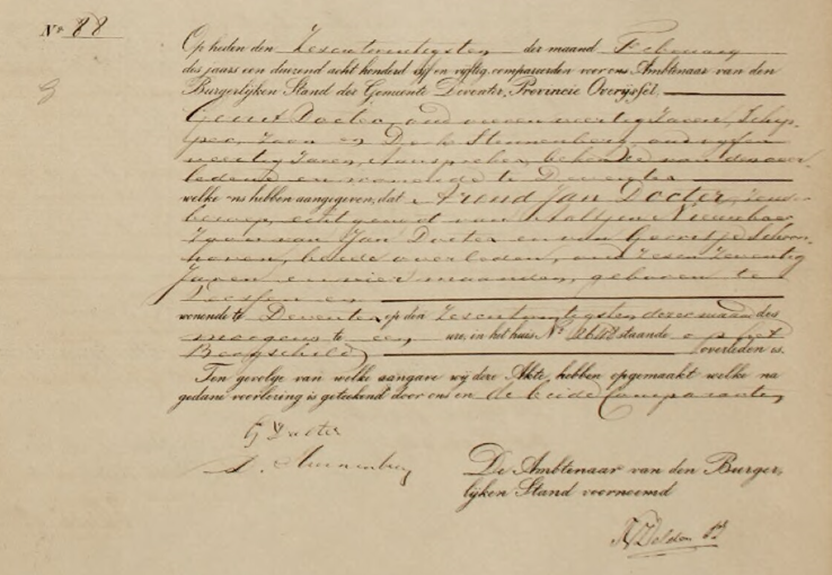 No 88
Op heden den Zesentwintigsten der maand Februarij
des jaars een duizend acht honderd vijf en vijftig, compareerden voor ons Ambtenaar van den
Burgerlijken Stand der Gemeente Deventer, Provincie Overijssel.
Gerrit Docter, oud veertig Jaren, Schip-
per, Zoon en Derk Stunnenberg, oud vijfen
veertig Jaren, Aanspreker, bekende van den over-
ledene en wonende te Deventer
welke ons hebben aangegeven, dat Arend Jan Docter, zonder
beroep, echtgenoot van Aaltjen Nieuwboer
Zoon van Jan Docter en van Geertje Schoon-
hoven, beide overleden, oud Zesen Zeventig
Jaren en vier maanden, geboren te
en
wonende te Deventer op den Zesentwintigsten dezer maand des
morgens te een ure, in het huis No staande op het
Bergschild overleden is.
Ten gevolge van welke aangave wij deze Akte hebben opgemaakt welke na
gedane voorlezing is geteekend door ons en de beide Comparanten
G Docter
D. Stunnenberg
De Ambtenaar van den Burger-
lijken Stand voornoemd